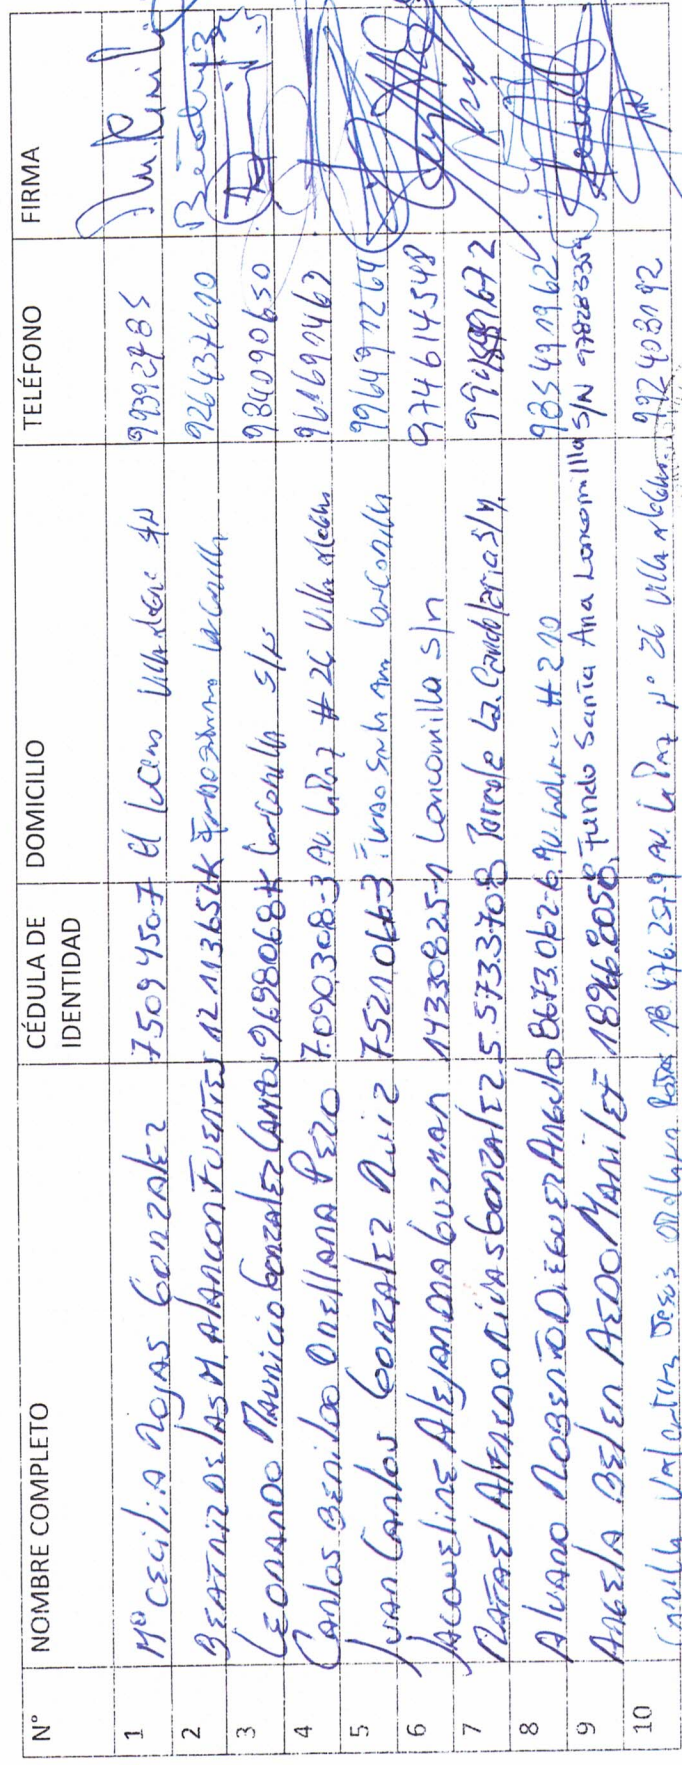 N° NOMBRE COMPLETO CÉDULA DE IDENTIDAD DOMICILIO TELÉFONO FIRMA
1 Mª CECILIA ROJAS GONZALEZ 7509450-7 El Lucero Villa Alegre S/N 99392485
2 BEATRIZ DE LAS M ALARCON FUENTES 12113652K 926437610 Beatriz
3 LEONARDO MAURICIO GONZALEZ CAMPOS 9698068K Loncomilla S/N 984090650
4 CARLOS BENITO ORELLANA PEZO 7.090.308-3 AV. LA PAZ # 26 Villa Alegre 961691463
5 JUAN CARLOS GONZALEZ RUIZ 7521066-3 Fundo Santa Ana Loncomilla 996491264
6 JACQUELINE ALEJANDRA GUZMAN 14330825-1 Loncomilla S/n 974614548
7 RAFAEL ALFREDO RIVAS GONZALEZ 5.573.370-8 Parcela La Candelaria S/N.
8 ALVARO ROBERTO DIEGUEZ ANGULO 8673.062-6 AV. # 210 985491962
9 ANGELA BELEN AEDO 18968205 Fundo Santa Ana Loncomilla S/N 978283354
10 Camilla Valentina Jesús Orellana Rojas 18.476.257-9 AV. La Paz N° 26 Villa Alegre. 992403192